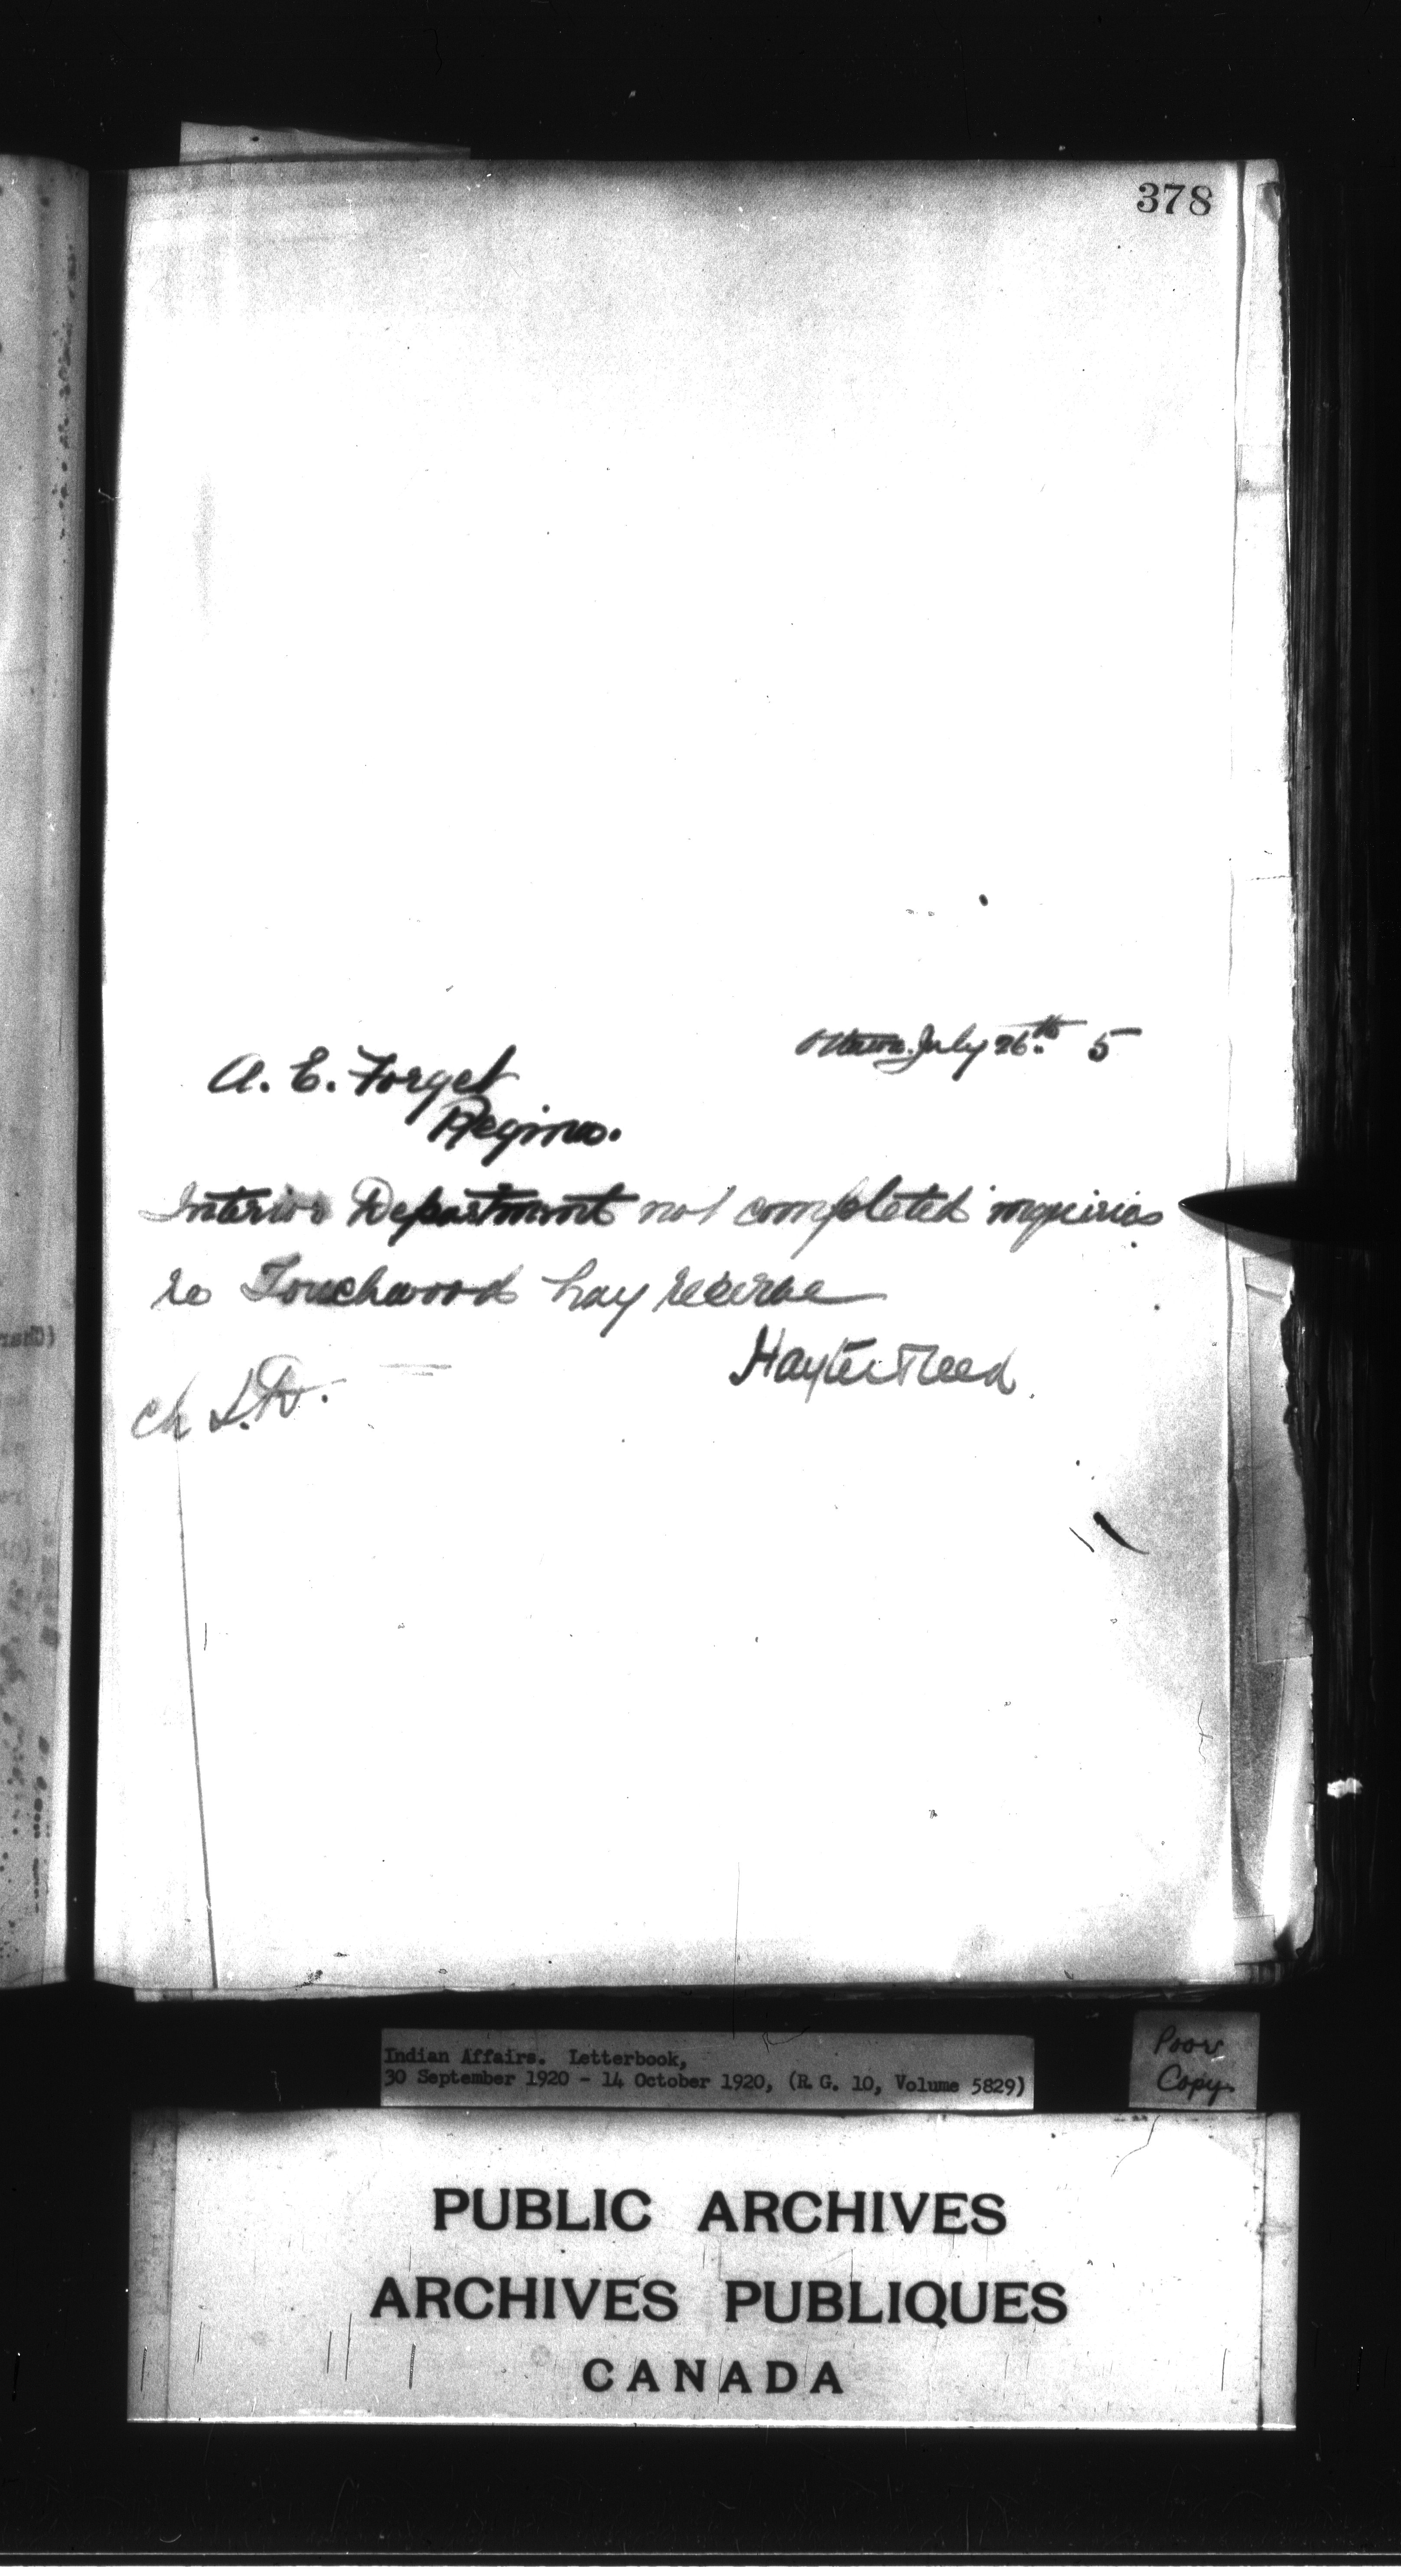 378
Ottawa. July 26th. 5
A. E. Forget
Regina.
Interior Department not completed inquiries
re Touchwood hay reserve
Hayter Reed.
Ch
Indian Affairs. Letterbook,
30 September 1920 - 14 October 1920, (R.G. 10, Volume 5829)
Poor
Copy
PUBLIC ARCHIVES
ARCHIVES PUBLIQUES
CANADA